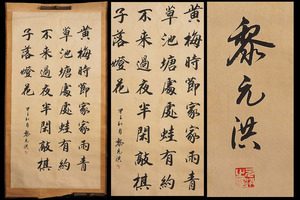 黄梅時節家家雨青
草池塘處處蛙有約
不來過夜半閑敲棋
子落燈花
甲子月黎元洪
黄梅時節家家雨青
草池塘處處蛙有約
不來過夜半閑敲棋
子落燈花
甲子月黎元洪
黎元洪